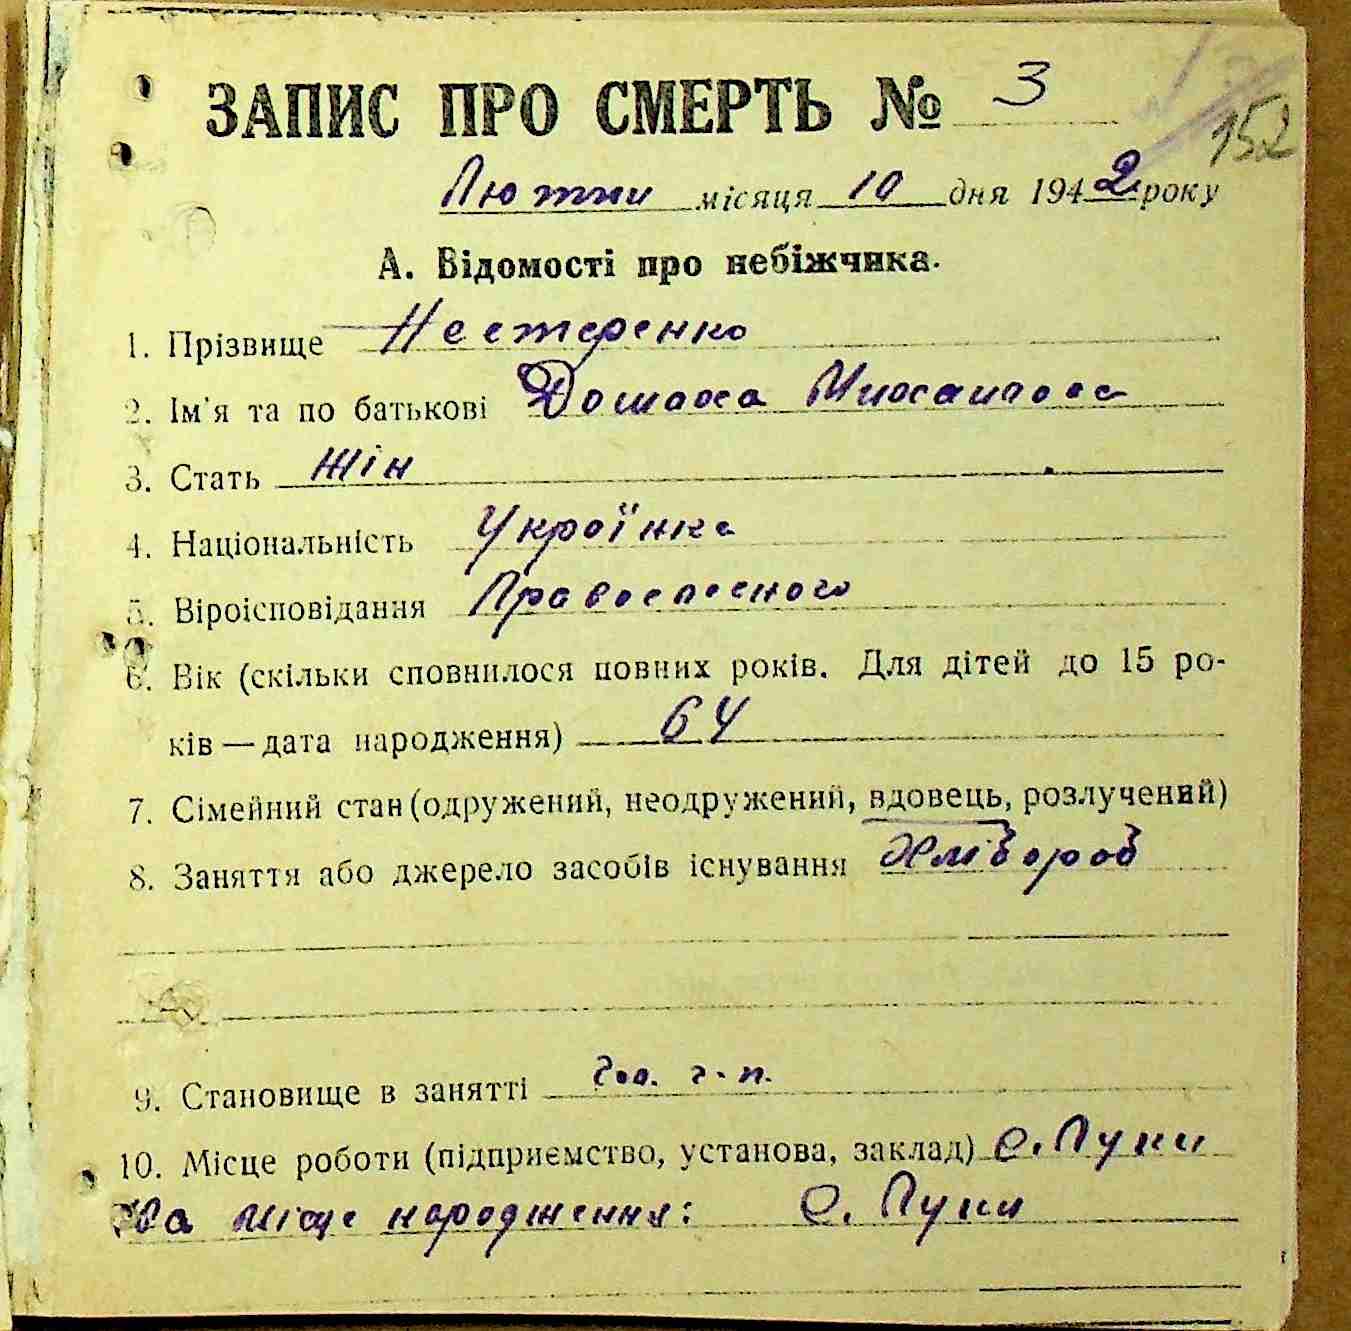 ЗАПИС ПРО СМЕРТЬ № 3
152
Лютни місяця 10 дня 1942 року
А. Відомості про небіжчика.
1. Прізвище Нестеренко
2. Ім'я та по батькові Домаха Михайлова
3. Стать жін
4. Національність Українка
5. Віроісповідання Православного
6. Вік (скільки сповнилося повних років. Для дітей до 15 ро-
ків — дата народження) 64
7. Сімейний стан (одружений, неодружений, вдовець, розлучений)
8. Заняття або джерело засобів існування Хлібороб
9. Становище в занятті
10. Місце роботи (підприємство, установа, заклад) с. Луки
та місце народження: с. Луки